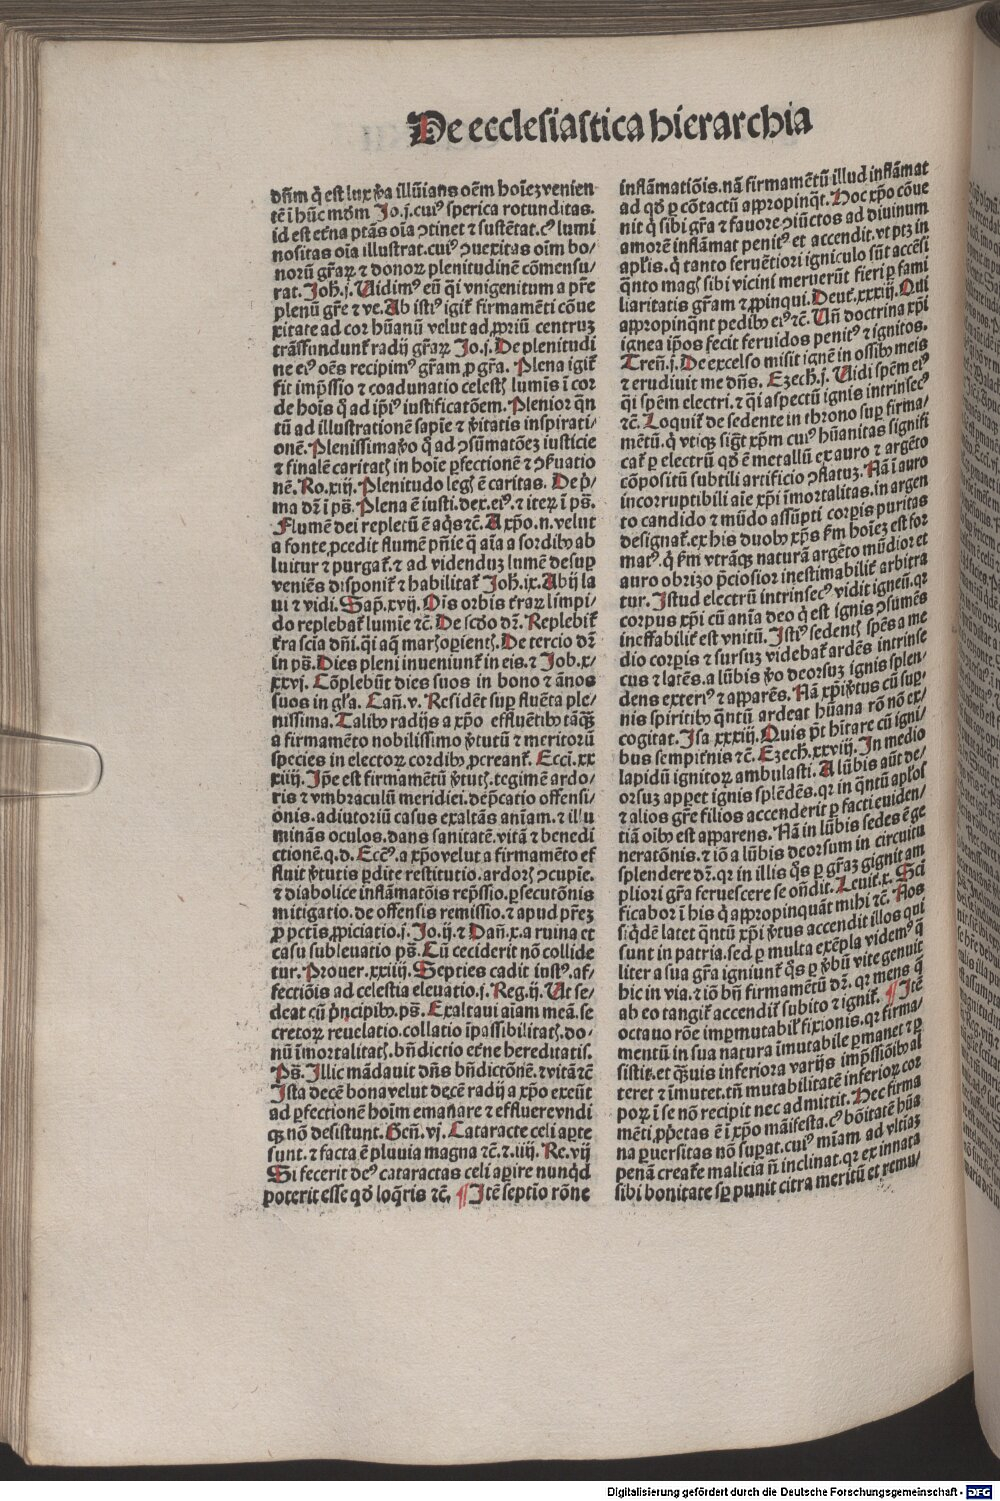 De ecclesiastica hierarchia
dñm q̄ est lux v̄a illūians oēm hoīez venien
tē ī hūc mūdm Jo.j.cui⁹ sperica rotunditas.
id est etn̄a ptās oīa ↄtinet ⁊ sustētat.c⁹ lumi
nositas oīa illustrat.cui⁹ ↄuexitas oīm bo/
norū gr̄aꝝ ⁊ donoꝝ plenitudinē cōmensu/
rat. Joh̄.j. Uidim⁹ eū q̄i vnigenitum a pr̄e
plenū gr̄e ⁊ ve. Ab isti⁹ igit̄ firmamēti cōue
xitate ad cor hūanū velut ad ꝓpriū centruz
trāsfundunt̄ radij gr̄aꝝ Jo.j. De plenitudi
ne ei⁹ oēs recipim⁹ gr̄am ꝓ gr̄a. Plena igit̄
fit imp̄ssio ⁊ coadunatio celestꝭ lumīs ī cor
de hoīs q̄ ad ip̄i⁹ iustificatōem. Plenior q̄n
tū ad illustrationē sapīe ⁊ v̄itatis inspirati/
onē. Plenissima v̄o q̄ ad ↄsūmatōez iusticie
⁊ finalē caritatꝭ in hoīe ꝑfectionē ⁊ ↄẜuatio
nē. Ro.xiij. Plenitudo legꝭ ē caritas. De p̄/
ma dr̄ ī ps̄. Plena ē iusti.dex.ei⁹.⁊ iteꝝ ī ps̄.
Flumē dei repletū ē aq̄s ⁊c̄. A xp̄o.n.velut
a fonte ꝓcedit flumē pn̄ie q̄ aīa a sordibꝫ ab
luitur ⁊ purgat̄.⁊ ad videnduz lumē desuꝑ
veniēs disponit̄ ⁊ habilitat̄ Joh̄.ix. Abij la
ui ⁊ vidi. Sap̄.xvij. Ois orbis t̄raꝝ limpi/
do replebat̄ lumīe ⁊c̄. De scd̄o dr̄. Replebit̄
t̄ra scīa dn̄i.q̄i aq̄ marꝭ oꝑientꝭ. De tercio dr̄
in ps̄. Dies pleni inueniunt̄ in eis.⁊ Job.x/
xxvj. Cōplebūt dies suos in bono ⁊ ānos
suos in gl̄a. Can̄.v. Residēt suꝑ fluēta ple/
nissima. Talibꝫ radijs a xp̄o effluētibꝫ tāq̄ꝫ
a firmamēto nobilissimo v̄tutū ⁊ meritorū
species in electoꝝ cordibꝫ ꝓcreant̄. Ecci.xx
xiiij. Ip̄e est firmamētū v̄tutꝭ.tegimē ardo/
ris ⁊ vmbraculū meridiei.dep̄catio offensi/
onis.adiutoriū casus exaltās anīam.⁊ illu
minās oculos.dans sanitatē.vitā ⁊ benedi
ctionē.q.d. Ecc̄⁹.a xp̄o velut a firmamēto ef
fluit v̄tutis ꝑdite restitutio.ardorꝭ ↄcupie.
⁊ diabolice inflāmatōis rep̄ssio.ꝑsecutōnis
mitigatio.de offensis remissio.⁊ apud pr̄eꝫ
ꝓ pctīs ꝓpiciatio.j. Jo.ij.⁊ Dan̄.x.a ruina et
casu subleuatio ps̄. Cū ceciderit nō collide
tur. Prouer.xxiiij. Septies cadit iust⁹.af/
fectiōis ad celestia eleuatio.j. Reg.ij. Ut se/
deat cū p̄ncipibꝫ.ps̄. Exaltaui aīam meā.se
cretoꝝ reuelatio.collatio īpassibilitatꝭ.do/
nū īmortalitatꝭ.bn̄dictio et̄ne hereditatis.
Ps̄. Illic mādauit dn̄s bn̄dictōnē.⁊ vitā ⁊c̄
Ista decē bona velut decē radij a xp̄o exeūt
ad ꝑfectionē hoīm emanare ⁊ effluere vndi
qꝫ nō desistunt. Gen̄.vj. Cataracte celi aꝑte
sunt.⁊ facta ē pluuia magna ⁊c̄.⁊.iiij. Re.vij
Si fecerit de⁹ cataractas celi aꝑire nunq̄d
poterit esse qd̄ loq̄ris ⁊c̄. ¶ Itē septīo rōne
inflāmatiōis.nā firmamētū illud inflāmat
ad qd̄ ꝑ cōtactū appropinq̄t. Hoc xp̄o cōue
nit q̄ sibi gr̄a ⁊ fauore ↄiūctos ad diuinum
amorē inflāmat penit⁹ et accendit.vt ptꝫ in
apl̄is.q̄ tanto feruētiori igniculo sūt accēsi
q̄nto magꝭ sibi vicini meruerūt fieri ꝑ fami
liaritatis gr̄am ⁊ ꝓpinqui. Deut̄.xxxiij. Qui
appropinq̄nt pedibꝫ ei⁹ ⁊c̄. Un̄ doctrina xp̄i
ignea ip̄os fecit feruidos penit⁹ ⁊ ignitos.
Tren̄.j. De excelso misit ignē in ossibꝫ meis
⁊ erudiuit me dn̄s. Ezech̄.j. Uidi spēm ei⁹
q̄i spēm electri.⁊ q̄i aspectū ignis intrinsec⁹
⁊c̄. Loquit̄ de sedente in throno suꝑ firma/
mētū.q̄ vtiqꝫ sigt̄ xp̄m cui⁹ hūanitas signifi
cat̄ ꝑ electrū qd̄ ē metallū ex auro ⁊ argēto
cōpositū subtili artificio ↄflatuꝫ. Nā ī auro
incorruptibili aīe xp̄i īmortalitas.in argen
to candido ⁊ mūdo assūpti corpis puritas
designat̄.ex his duobꝫ xp̄s ẜm hoīez est for
mat⁹.q̄ ẜm vtrāqꝫ naturā argēto mūdior et
auro obrizo p̄ciosior inestimabilit̄ arbitra
tur. Istud electrū intrinsec⁹ vidit igneū.qꝛ
corpus xp̄i cū anīa deo q̄ est ignis ↄsumēs
ineffabilit̄ est vnitū. Isti⁹ sedentꝭ spēs a me
dio corpis ⁊ sursuꝫ videbat̄ ardēs intrinse
cus ⁊ latēs.a lūbis v̄o deorsuꝫ ignis splen/
dens exteri⁹ ⁊ apparēs. Nā xp̄i v̄tus cū suꝑ/
nis spiritibꝫ q̄ntū ardeat hūana rō nō ex/
cogitat. Isa xxxiij. Quis p̄t hītare cū igni/
bus sempit̄nis ⁊c̄. Ezech̄.xxviij. In medio
lapidū ignitoꝝ ambulasti. A lūbis aūt de/
orsuꝫ apꝑet ignis splēdēs.qꝛ in q̄ntū apl̄os
⁊ alios gr̄e filios accenderit ꝑ facti euiden/
tiā oībꝫ est apparens. Nā in lūbis sedes ē ge
neratōnis.⁊ iō a lūbis deorsum in circuitu
splendere dr̄.qꝛ in illis q̄s ꝑ gr̄aꝫ gignit am
pliori gr̄a feruescere se on̄dit. Leuit̄.x. Scī
ficabor ī his q̄ appropinquāt mihi ⁊c̄. Nos
siq̄dē latet q̄ntū xp̄i v̄tus accendit illos qui
sunt in patria.sed ꝑ multa exēpla videm⁹ q̄
liter a sua gr̄a igniunt̄ q̄s ꝑ v̄bū vite genuit
hic in via.⁊ iō bn̄ firmamētū dr̄.qꝛ mens q̄
ab eo tangit̄ accendit̄ subito ⁊ ignit̄. ¶ Itē
octauo rōe impmutabil̄ fixionis.qꝛ firma/
mentū in sua natura īmutabile ꝑmanet ⁊ ꝑ
sistit.et q̄uis inferiora varijs imp̄ssiōibꝫ al
teret ⁊ īmutet.tn̄ mutabilitatē inferioꝝ cor
poꝝ ī se nō recipit nec admittit. Hec firma
mēti ꝓprietas ē ī xp̄o māifesta.c⁹ bōitatē hūa
na ꝑuersitas nō suꝑat.cui⁹ mīam ad vltiaꝫ
penā creat̄e malicia n̄ inclinat.qꝛ ex innata
sibi bonitate sꝑ punit citra meritū et remu/
Digitalisierung gefördert durch die Deutsche Forschungsgemeinschaft - DFG